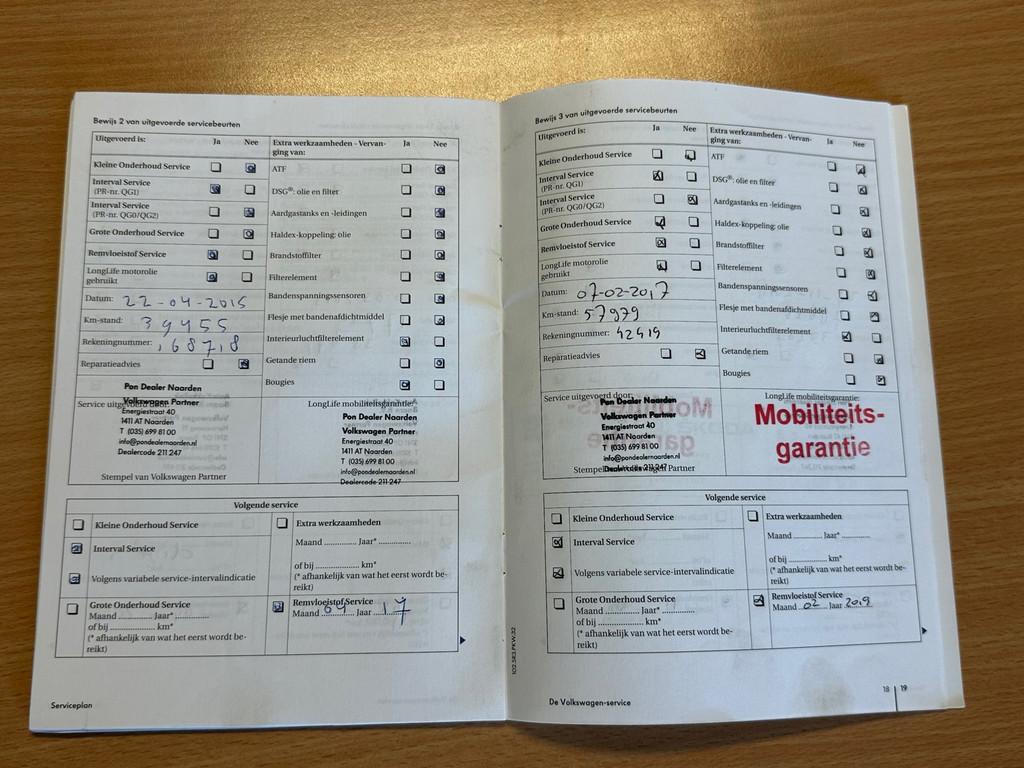 Bewijs 2 van uitgevoerde servicebeurten
Uitgevoerd is: Ja Nee
Kleine Onderhoud Service
Interval Service
(PR-nr. QG1)
Interval Service
(PR-nr. QG0/QG2)
Grote Onderhoud Service
Remvloeistof Service
LongLife motorolie
gebruikt
Datum: 22-04-2015
Km-stand: 39455
Rekeningnummer: 168718
Reparatieadvies
Extra werkzaamheden - Vervan-
ging van: Ja Nee
ATF
DSG®: olie en filter
Aardgastanks en -leidingen
Haldex-koppeling: olie
Brandstoffilter
Filterelement
Bandenspanningssensoren
Flesje met bandenafdichtmiddel
Interieurluchtfilterelement
Getande riem
Bougies
Service uitgevoerd door:
Pon Dealer Naarden
Volkswagen Partner
Energiestraat 40
1411 AT Naarden
T (035) 699 81 00
info@pondealernaarden.nl
Dealercode 211 247
Stempel van Volkswagen Partner
LongLife mobiliteitsgarantie:
Pon Dealer Naarden
Volkswagen Partner
Energiestraat 40
1411 AT Naarden
T (035) 699 81 00
info@pondealernaarden.nl
Dealercode 211 247
Volgende service
Kleine Onderhoud Service
Interval Service
Volgens variabele service-intervalindicatie
Grote Onderhoud Service
Maand ........... Jaar* ....................
of bij ....................... km*
(* afhankelijk van wat het eerst wordt be-
reikt)
Extra werkzaamheden
Maand ........... Jaar* ...........
of bij ................ km*
(* afhankelijk van wat het eerst wordt be-
reikt)
Remvloeistof Service
Maand 04 Jaar 17
Serviceplan
Bewijs 3 van uitgevoerde servicebeurten
Uitgevoerd is: Ja Nee
Kleine Onderhoud Service
Interval Service
(PR-nr. QG1)
Interval Service
(PR-nr. QG0/QG2)
Grote Onderhoud Service
Remvloeistof Service
LongLife motorolie
gebruikt
Datum: 07-02-2017
Km-stand: 57979
Rekeningnummer: 42419
Reparatieadvies
Extra werkzaamheden - Vervan-
ging van: Ja Nee
ATF
DSG®: olie en filter
Aardgastanks en -leidingen
Haldex-koppeling: olie
Brandstoffilter
Filterelement
Bandenspanningssensoren
Flesje met bandenafdichtmiddel
Interieurluchtfilterelement
Getande riem
Bougies
Service uitgevoerd door:
Pon Dealer Naarden
Volkswagen Partner
Energiestraat 40
1411 AT Naarden
T (035) 699 81 00
info@pondealernaarden.nl
Dealercode 211 247
Stempel van Volkswagen Partner
LongLife mobiliteitsgarantie:
Mobiliteits-
garantie
Volgende service
Kleine Onderhoud Service
Interval Service
Volgens variabele service-intervalindicatie
Grote Onderhoud Service
Maand ........... Jaar* ....................
of bij ....................... km*
(* afhankelijk van wat het eerst wordt be-
reikt)
Extra werkzaamheden
Maand ........... Jaar* ...........
of bij ................ km*
(* afhankelijk van wat het eerst wordt be-
reikt)
Remvloeistof Service
Maand 02 Jaar 2019
102.5R3.PKW.32
De Volkswagen-service
18 | 19